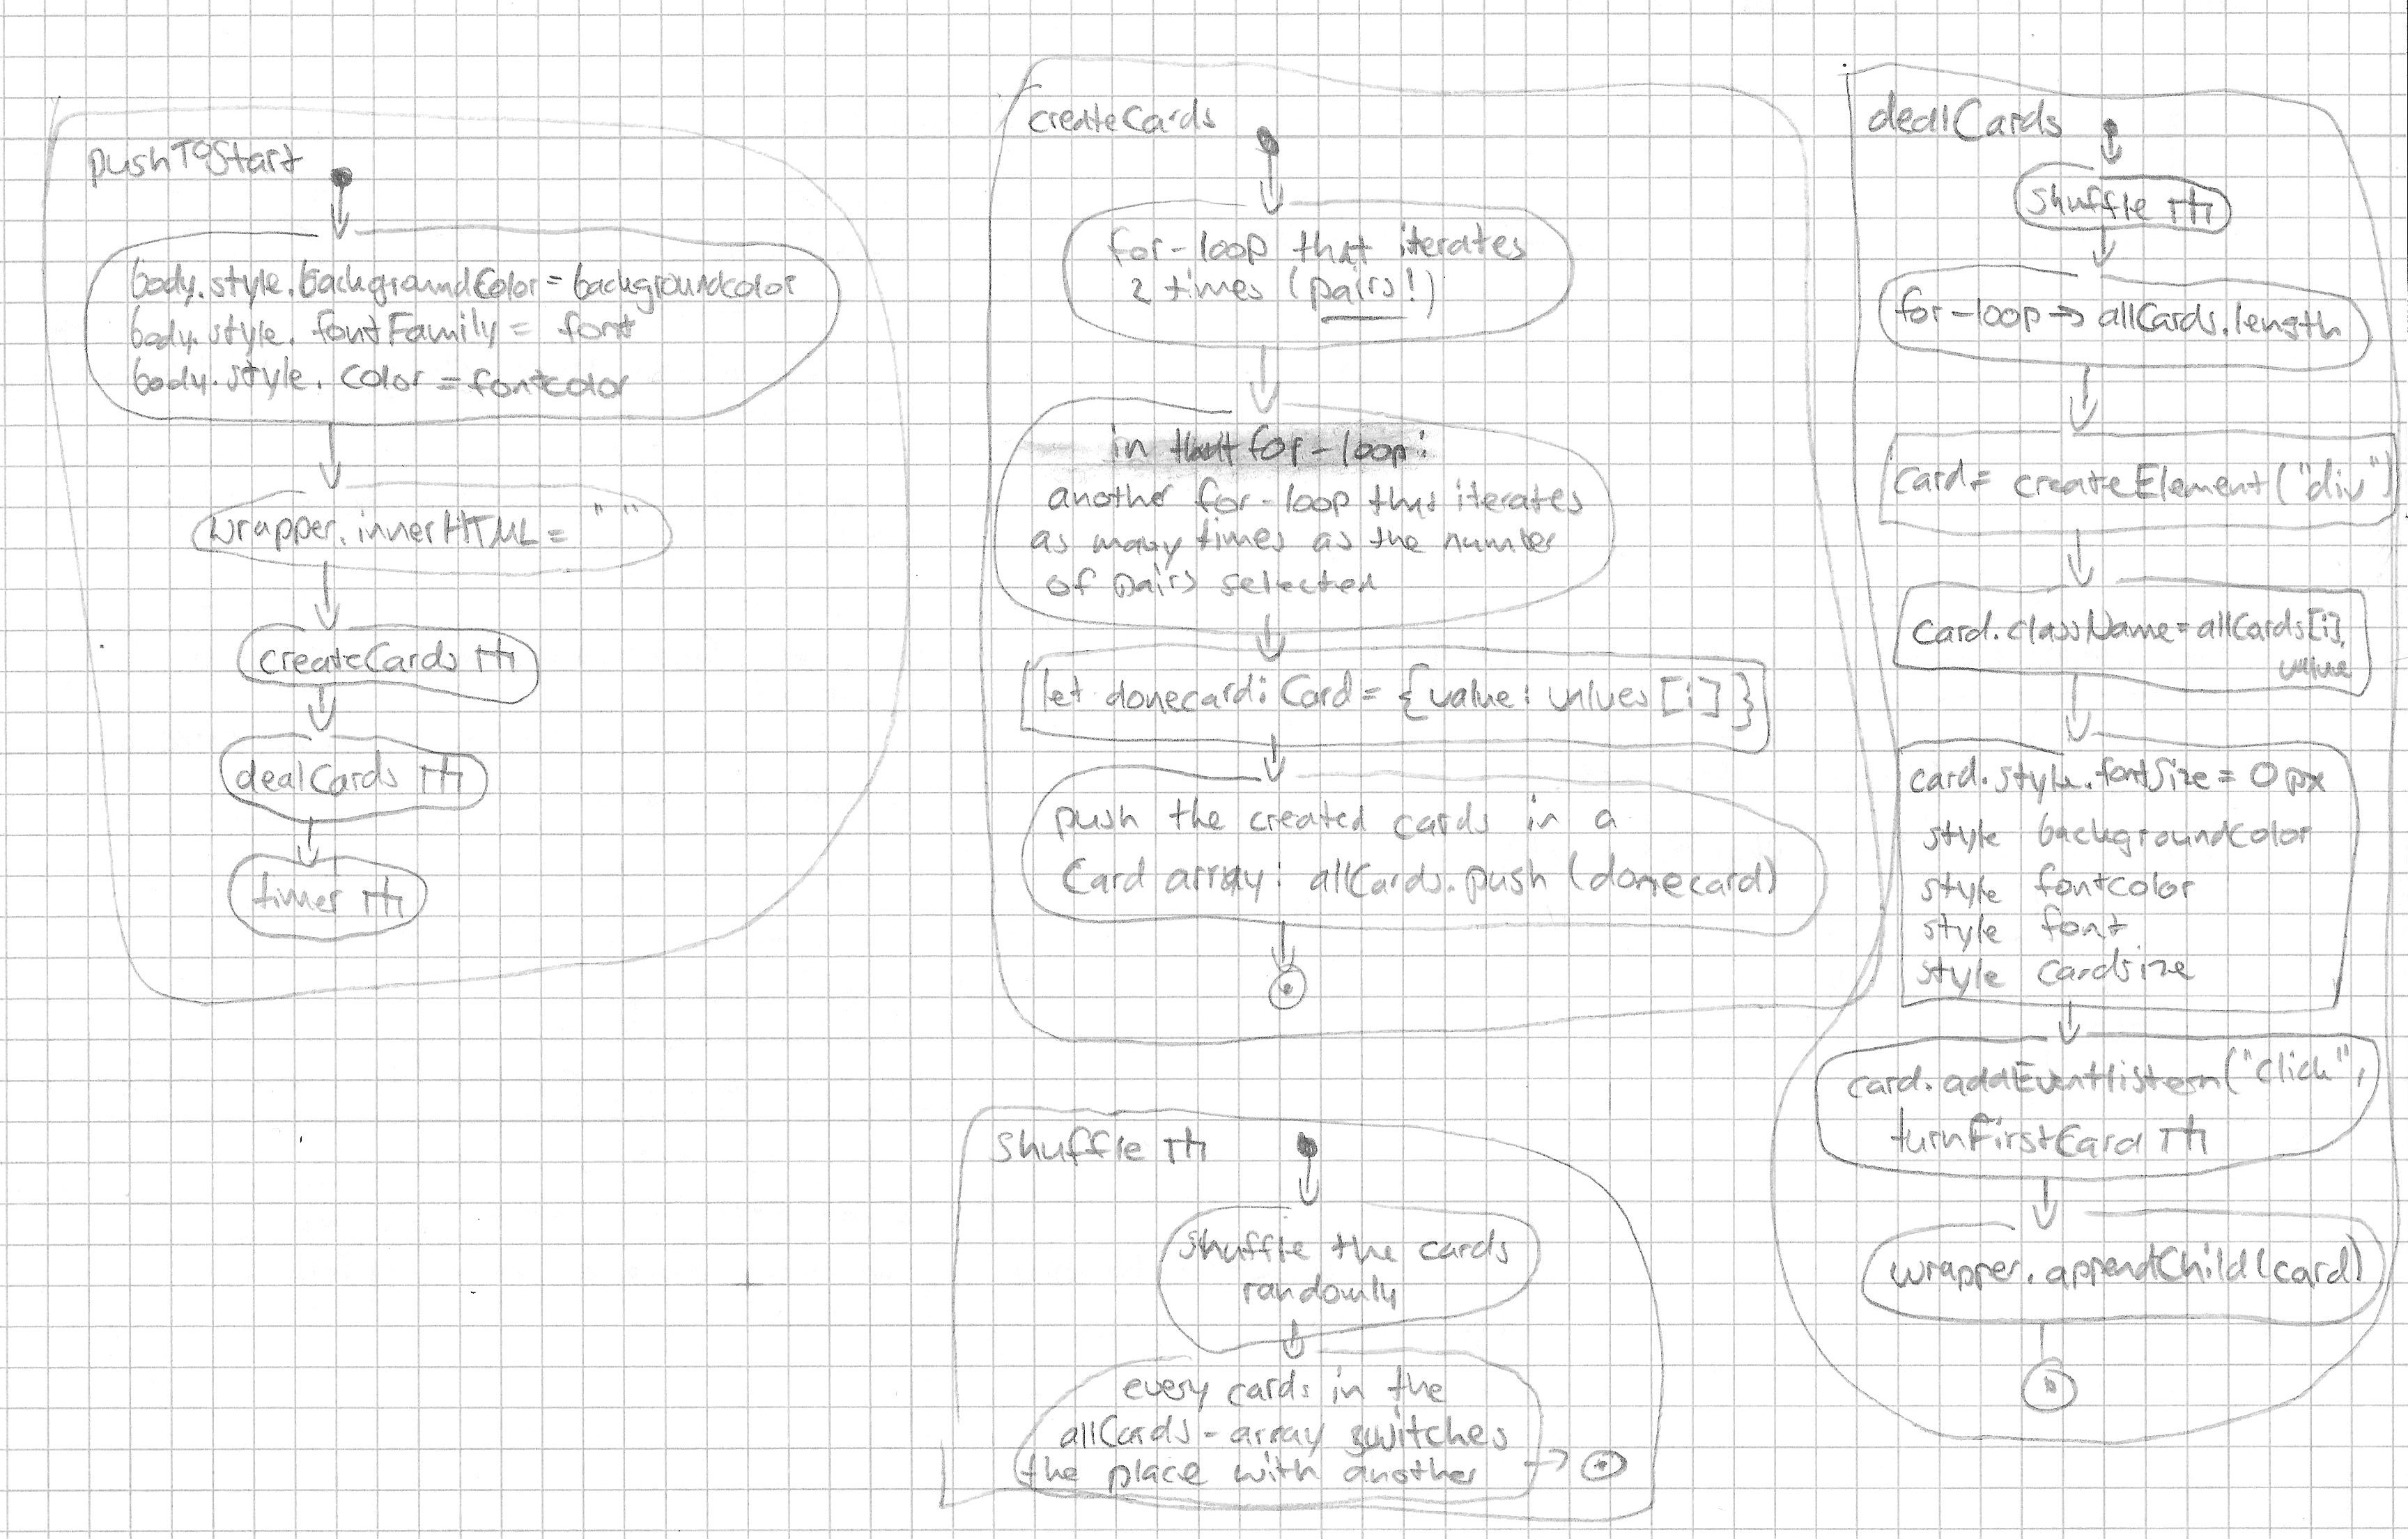 pushToStart
body.style.backgroundColor = backgroundcolor
body.style.fontFamily = font
body.style.color = fontcolor
wrapper.innerHTML = " "
createCards
dealCards
timer
createCards
for-loop that iterates
2 times (pairs!)
in that for-loop:
another for-loop that iterates
as many times as the number
of pairs selected
let donecard: Card = {value: values [i] }
push the created cards in a
Card array: allCards.push (donecard)
shuffle
shuffle the cards
randomly
every cards in the
allCards-array switches
the place with another
dealCards
shuffle
for-loop → allCards.length
card = createElement ("div")
card.className = allCards[i].
value
card.style.fontSize = 0px
style backgroundcolor
style fontcolor
style font
style cardsize
card.addEventlistern("click",
turnFirstCard
wrapper.appendChild(card)